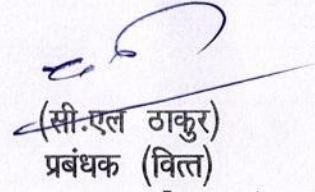 (सी.एल ठाकुर)
प्रबंधक (वित्त)